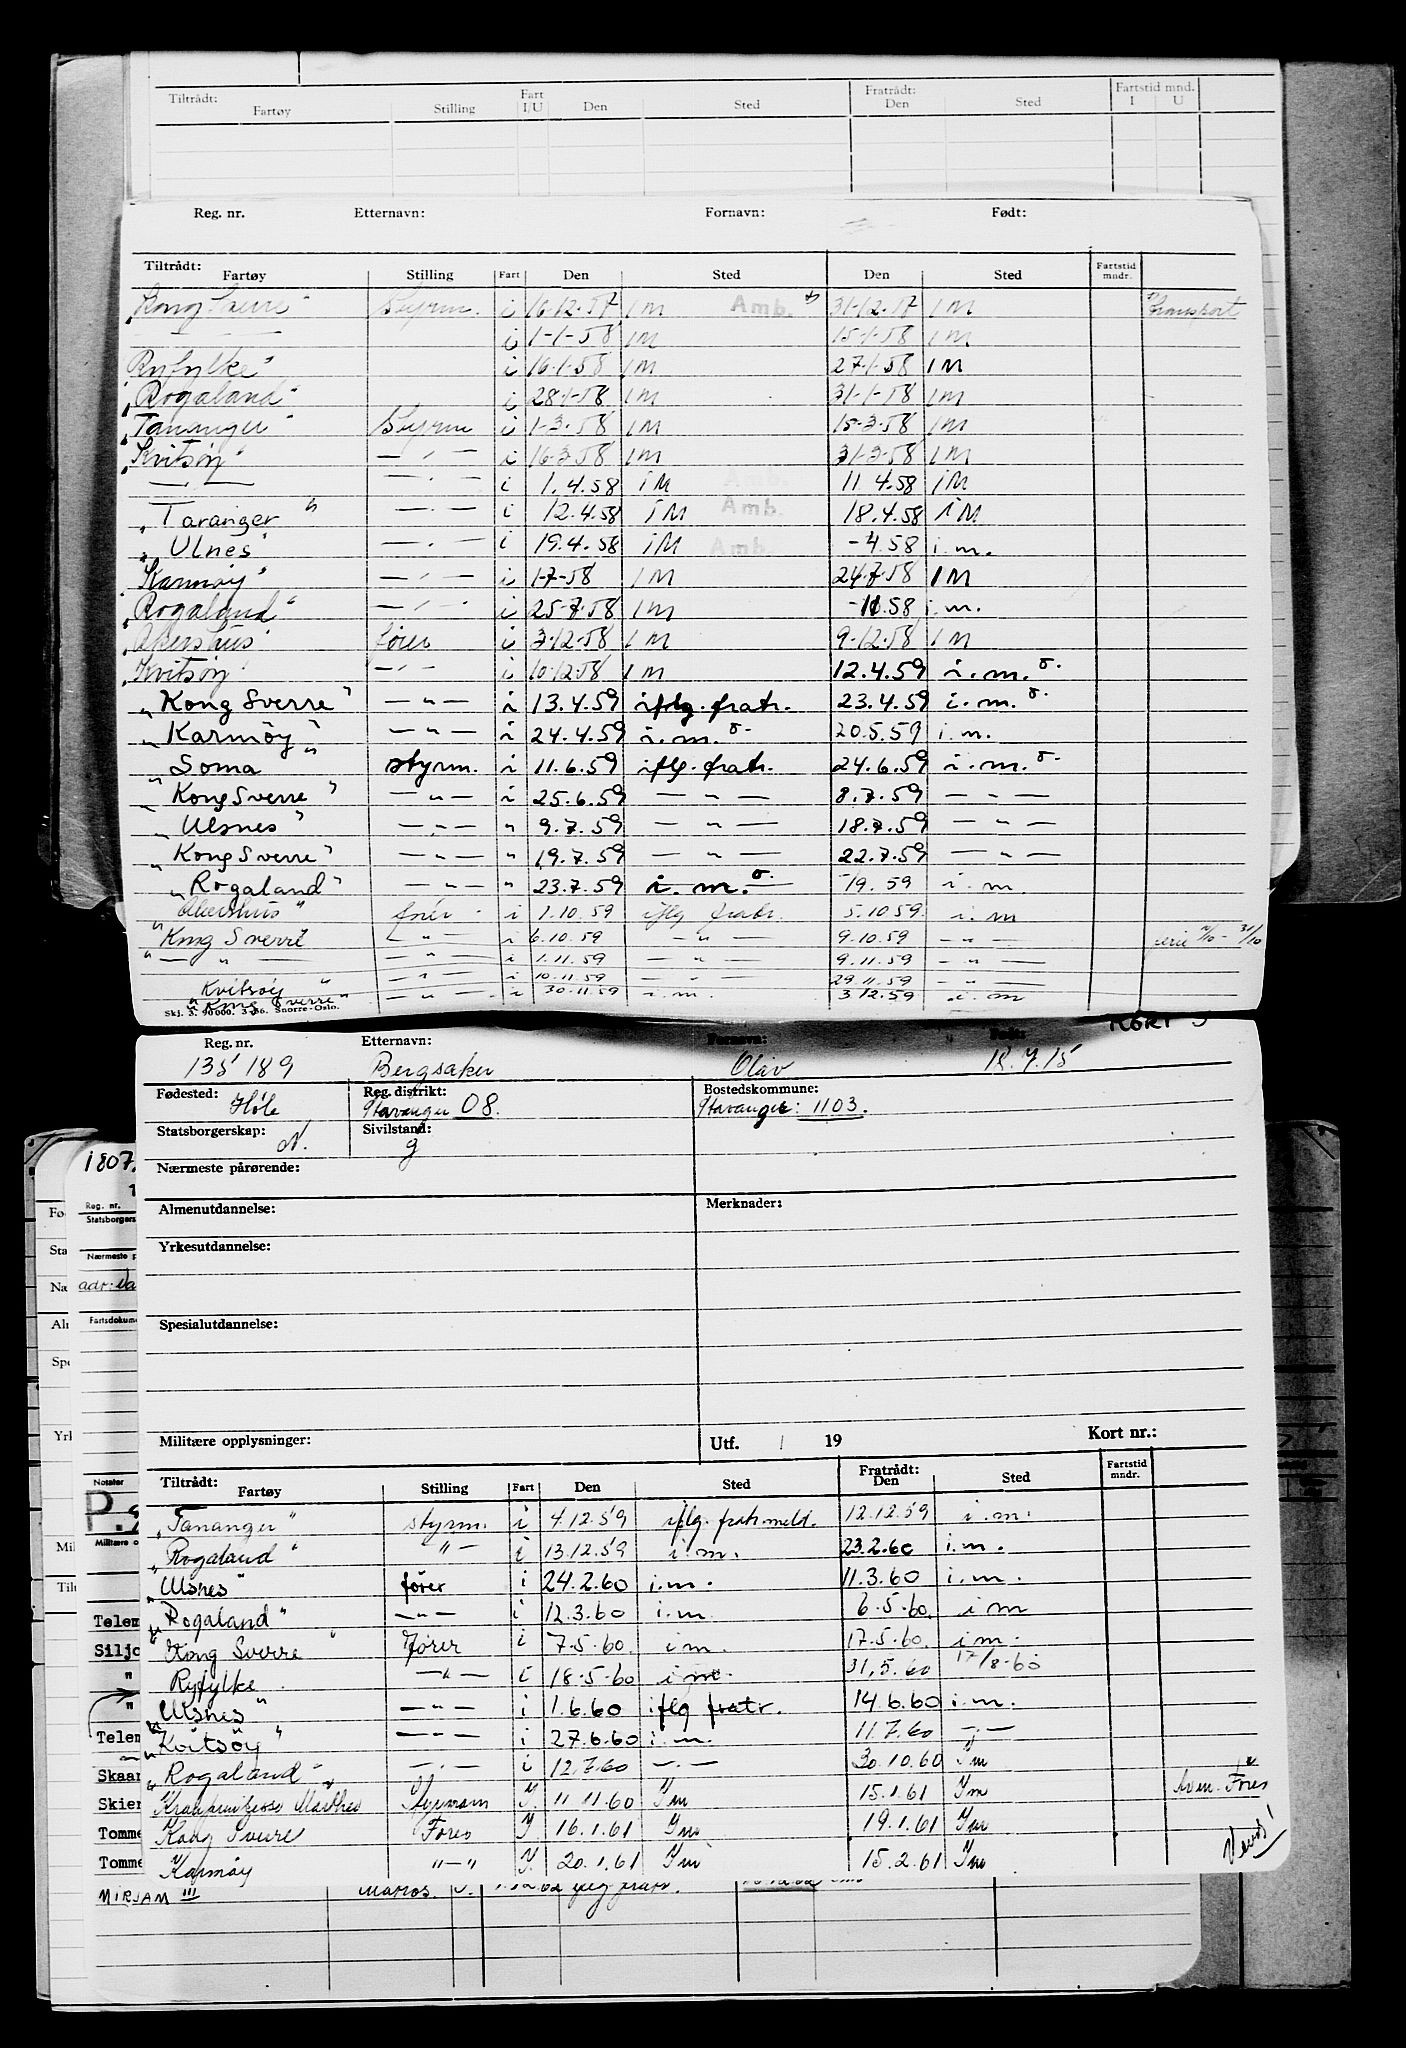 Tiltrådt: Fartøy Stilling Fart I/U Den Sted Fratrådt: Den Sted Fartstid mnd. I U
Reg. nr. Etternavn: Fornavn: Født:
Tiltrådt: Fartøy Stilling Fart Den Sted Den Sted Fartstid mndr.
"Kong Sverre" Styrm. i 16-12-57 IM Amb. 31-12-57 IM Transport
— i 1-1-58 IM 15-1-58 IM
Ryfylke" i 16-1-58 IM 27-1-58 IM
"Rogaland" i 28-1-58 IM 31-1-58 IM
"Tananger" Styrm i 1-3-58 IM 15-3-58 IM
"Kvitsøy" — " — i 16-3-58 IM 31-3-58 IM
— " — — " — i 1.4.58 IM Amb. 11 4.58 IM
"Tananger" — " — i 12.4.58 IM Amb. 18.4.58 IM
"Ulnes" — " — i 19.4.58 IM Amb. -4.58 i.m.
"Karmøy" — " — i 1-7-58 IM 24-7-58 IM
"Rogaland" — " — i 25-7-58 IM -11.58 i.m.
"Akershus" fører i 3-12-58 IM 9-12-58 IM
"Kvitsøy" — " — i 10-12-58 IM 12.4.59 i.m.
"Kong Sverre" — " — i 13.4.59 iflg. fratr. 23.4.59 i.m.
"Karmøy" — " — i 24.4.59 i.m. 20.5.59 i.m.
"Soma" styrm. i 11.6.59 iflg. fratr. 24.6.59 i.m.
"Kong Sverre" — " — i 25.6.59 — " — 8.7.59 — " —
"Ulsnes" — " — " 9.7.59 — " — 18.7.59 — " —
"Kong Sverre" — " — " 19.7.59 — " — 22.7.59 — " —
"Rogaland" — " — " 23.7.59 i.m. -/9.59 i.m.
"Akershus" fører i 1.10.59 iflg fratr. 5.10 59. i.m
"Kong Sverre" — " — i 6.10.59 — " — 9.10.59 — " — ferie 31/10
" — " — — " — i 1.11.59 9.11.59 — " —
Kvitsøy " — " — i 10.11.59 — " — 29.11.59 — " —
"Kong Sverre" — " — i 30.11.59 i.m. 3.12.59 i.m
Skj. 3. 90 000. 3-56. Snorre-Oslo.
KORT 3
Reg. nr. Etternavn: Fornavn: Født:
135 189 Bergsaker Olav 18.7.15
Fødested: Høle Reg. distrikt: Stavanger 08. Bostedskommune: Stavanger: 1103.
Statsborgerskap: N. Sivilstand: g
Nærmeste pårørende:
Almenutdannelse: Merknader:
Yrkesutdannelse:
Spesialutdannelse:
Militære opplysninger: Utf. / 19 Kort nr.:
Tiltrådt: Fartøy Stilling Fart Den Sted Fratrådt: Den Sted Fartstid mndr.
"Tananger" styrm. i 4.12.59 iflg. fratr.meld. 12.12.59 i.m.
"Rogaland" " — i 13.12.59 i.m. 23.2.60 i.m.
"Ulsnes" fører i 24.2.60 i.m. 11.3.60 i.m.
"Rogaland" — " — i 12.3.60 i.m. 6.5.60. i m
"Kong Sverre" fører i 7.5.60. i m. 17.5.60. i m.
Ryfylke — " — i 18.5.60 i m. 31.5.60 17/8-60
"Ulsnes" — " — i 1.6.60 iflg fratr. 14.6.60 i.m.
"Kvitsøy" — " — i 27.6.60 i.m. 11.7.60 — " —
"Rogaland" — " — i 12.7.60 — " — 30.10.60 Im
Styrmann I. 11.11.60 Im 15.1.61 Im Fører
Kong Sverre Fører I 16.1.61 Im 19.1.61 Im
Karmøy " — " I. 20.1.61 Im 15.2.61 Im. Vend!
1807.
Reg. nr.
Statsborgers
Nærmeste p
adr: Va
Fartsdokume
Notater
P.
Militære o
Telem
Siljo
"
"
Telem
Skaar
Skien
Tomme
Tomme
MIRJAM III Matros.
Fø
Sta
Næ
Alm
Spe
Yrk
Mil
Tilt